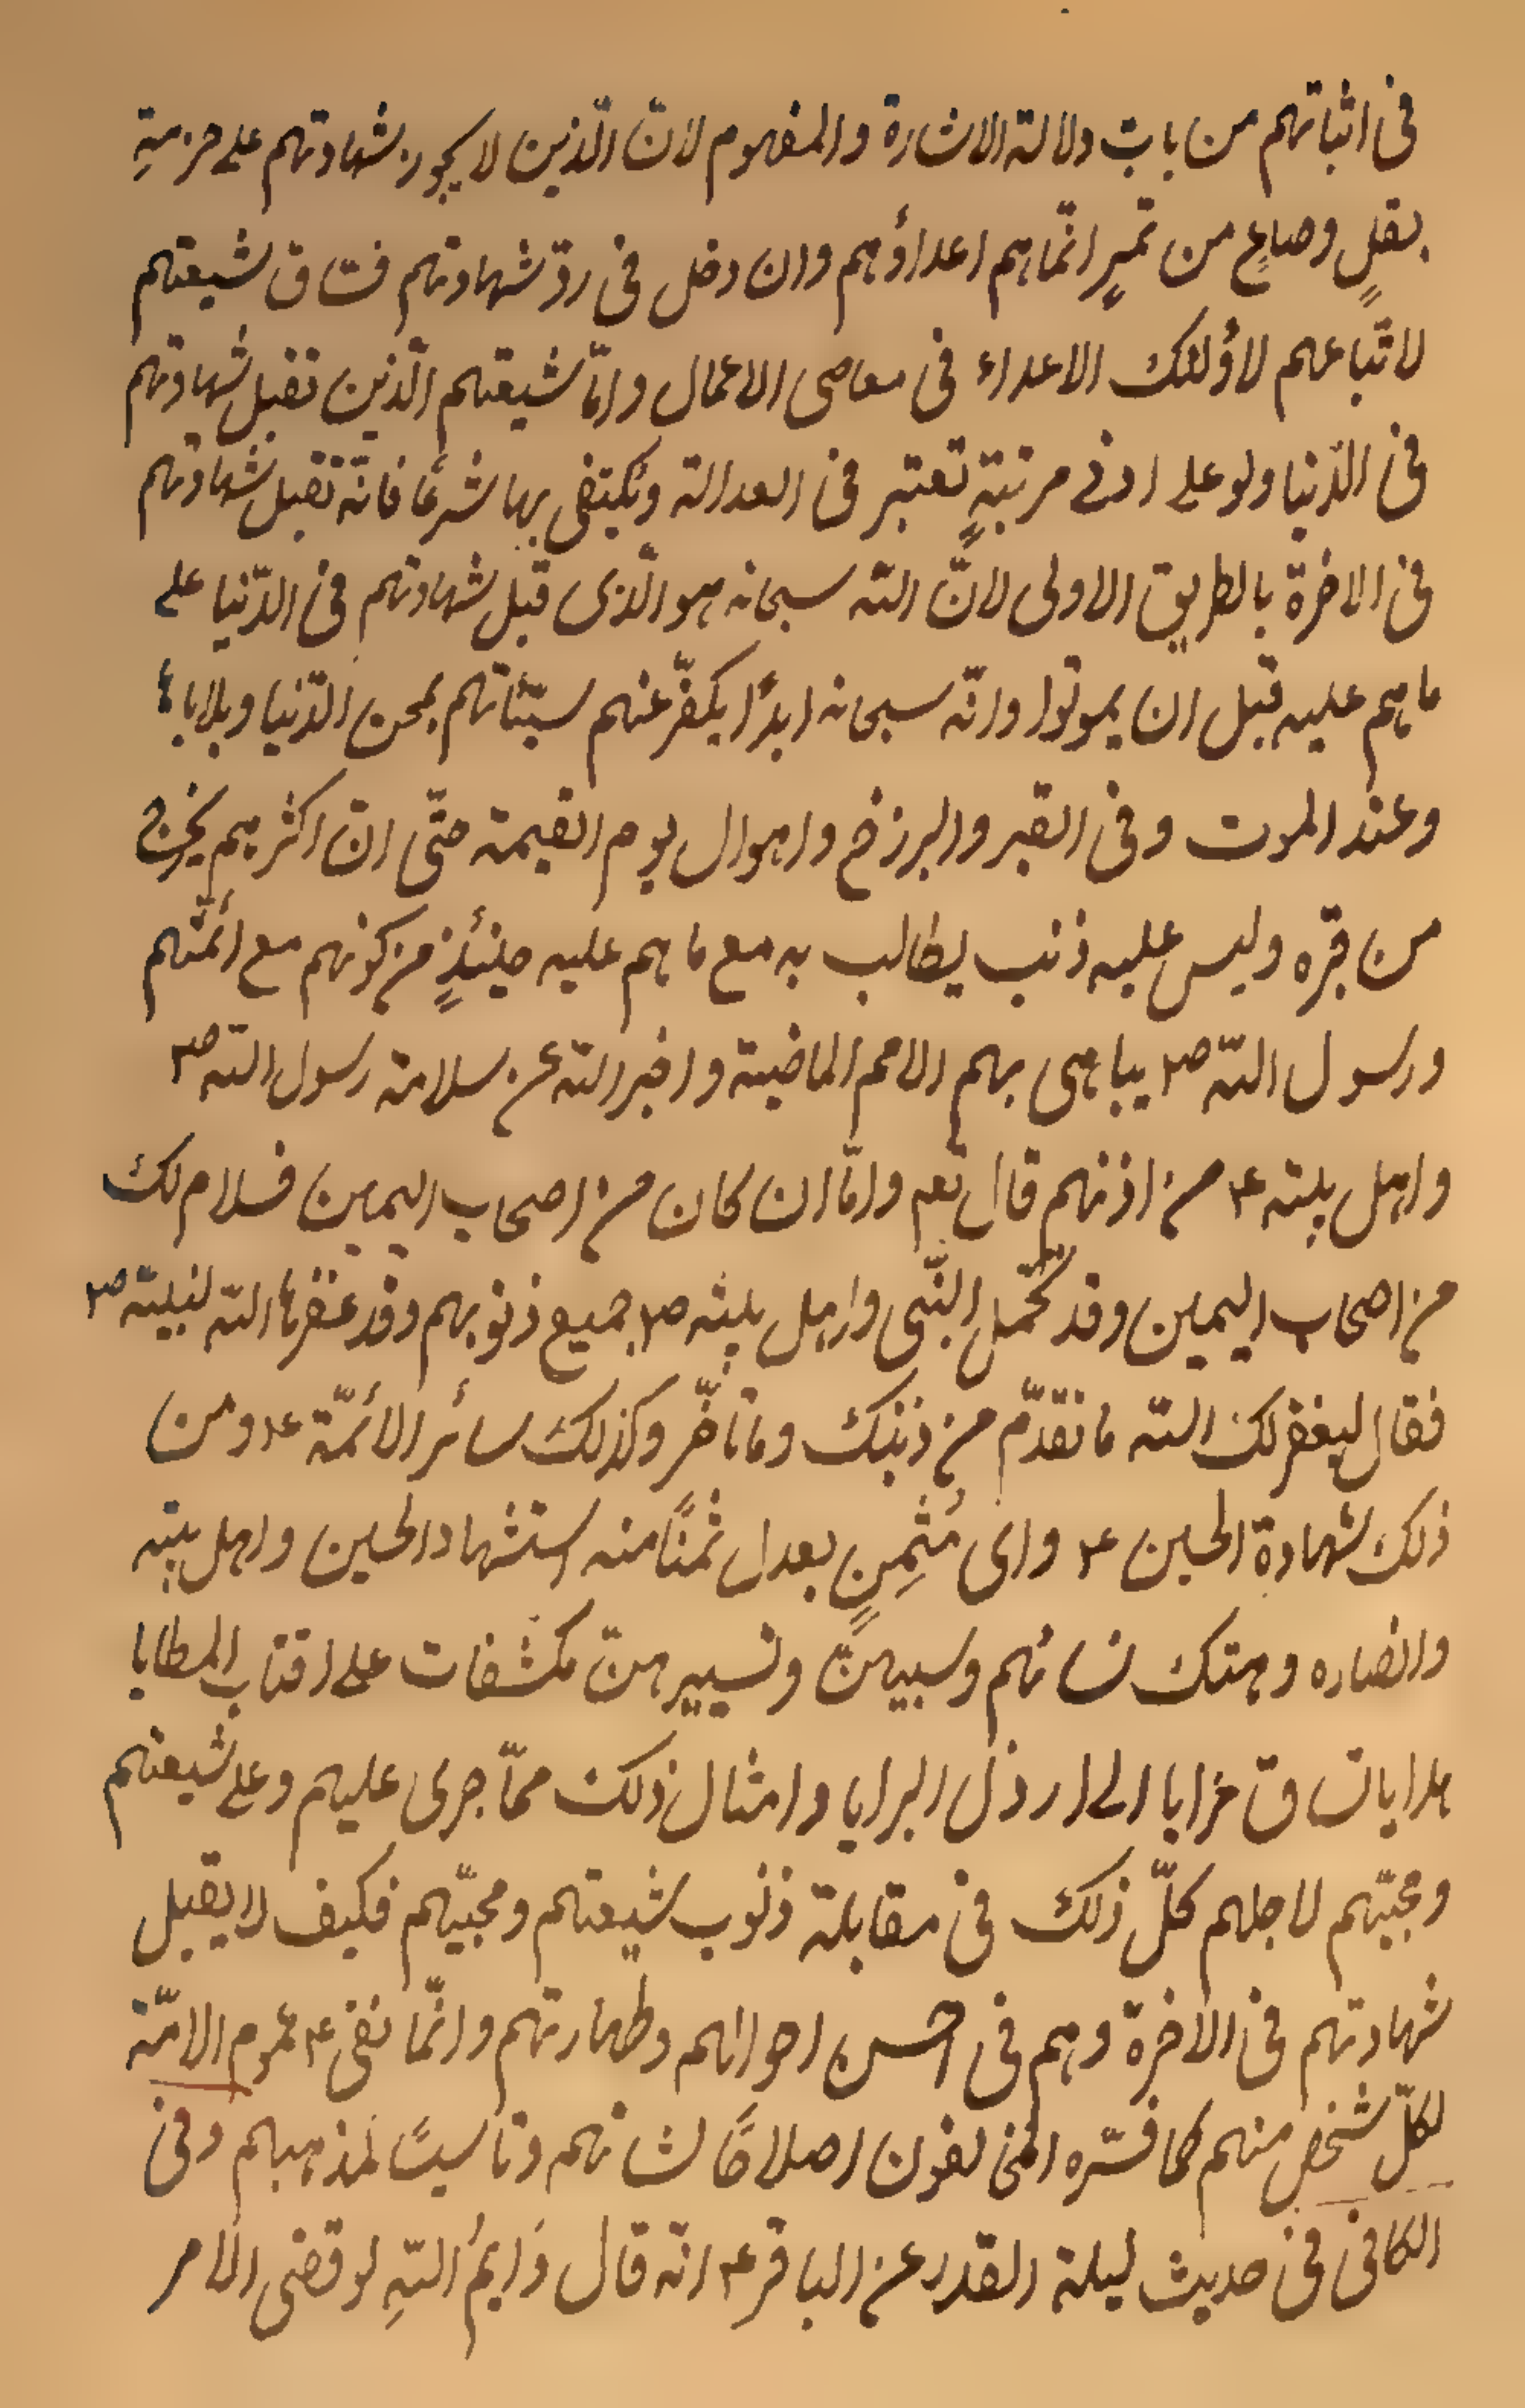 فى اثباتهم من باب دلالة الاشارة والمفهوم لانّ الّذين لا يجوز شهادتهم على حزمةِ
بقلٍ وصاعٍ من تمرٍ انّما هم اعداؤهم وان دخل فى ردّ شهادتهم فسّاق شيعتهم
لاتّباعهم لاؤلئك الاعداء فى معاصى الاعمال وامّا شيعتهم الّذين تقبل شهادتهم
فى الدّنيا ولو على ادنى مرتبةٍ تعتبر فى العدالة ويكتفى بها شرعًا فانّه تقبل شهادتهم
فى الاخرة بالطريق الاولى لانّ اللّه سبحانه هو الّذى قبل شهادتهم فى الدّنيا على
ما هم عليه قبل ان يموتوا وانّه سبحانه ابدًا يكفّر عنهم سيّئاتهم بمحن الدّنيا وبلاياها
وعند الموت وفى القبر والبرزخ واهوال يوم القيمة حتّى انّ اكثرهم يخرج
من قبره وليس عليه ذنب يطالب به مع ما هم عليه حينئذٍ من كونهم مع ائمّتهم
ورسول اللّه ص يباهى بهم الامم الماضية واخبر اللّه عن سلامة رسول اللّه ص
واهل بيته ع من اذنهم قال تعم وامّا ان كان من اصحاب اليمين فسلام لك
من اصحاب اليمين وقد تحمّل النّبى واهل بيته ص جميع ذنوبهم وقد غفرها اللّه لنبيّه ص
فقال ليغفر لك اللّه ما تقدّم من ذنبك وما تأخّر وكذلك سائر الائمّة ع ومن
ذلك شهادة الحسين ع واى مُثمِنٍ يعدل ثمنًا منه استشهاد الحسين واهل بيته
وانصاره وهتك نسائهم وسبيهنّ وتسييرهنّ مكشفات على اقتاب المطايا
هدايا تساق خزايا الى ارذل البرايا وامثال ذلك ممّا جرى عليهم وعلى شيعتهم
ومحبّيهم لاجلهم كلّ ذلك فى مقابلة ذنوب شيعتهم ومحبّيهم فكيف لا يقبل
شهادتهم فى الاخرة وهم فى احسن احوالهم وطهارتهم وانّما نفى ع عموم الامّة
لكلّ شخص منهم كما فسّره المخالفون اصلاحًا لشانهم وتاسيسًا لمذهبهم وفى
الكافى فى حديث ليلة القدر عن الباقر ع انّه قال وَايمُ اللّهِ لو قضى الامر